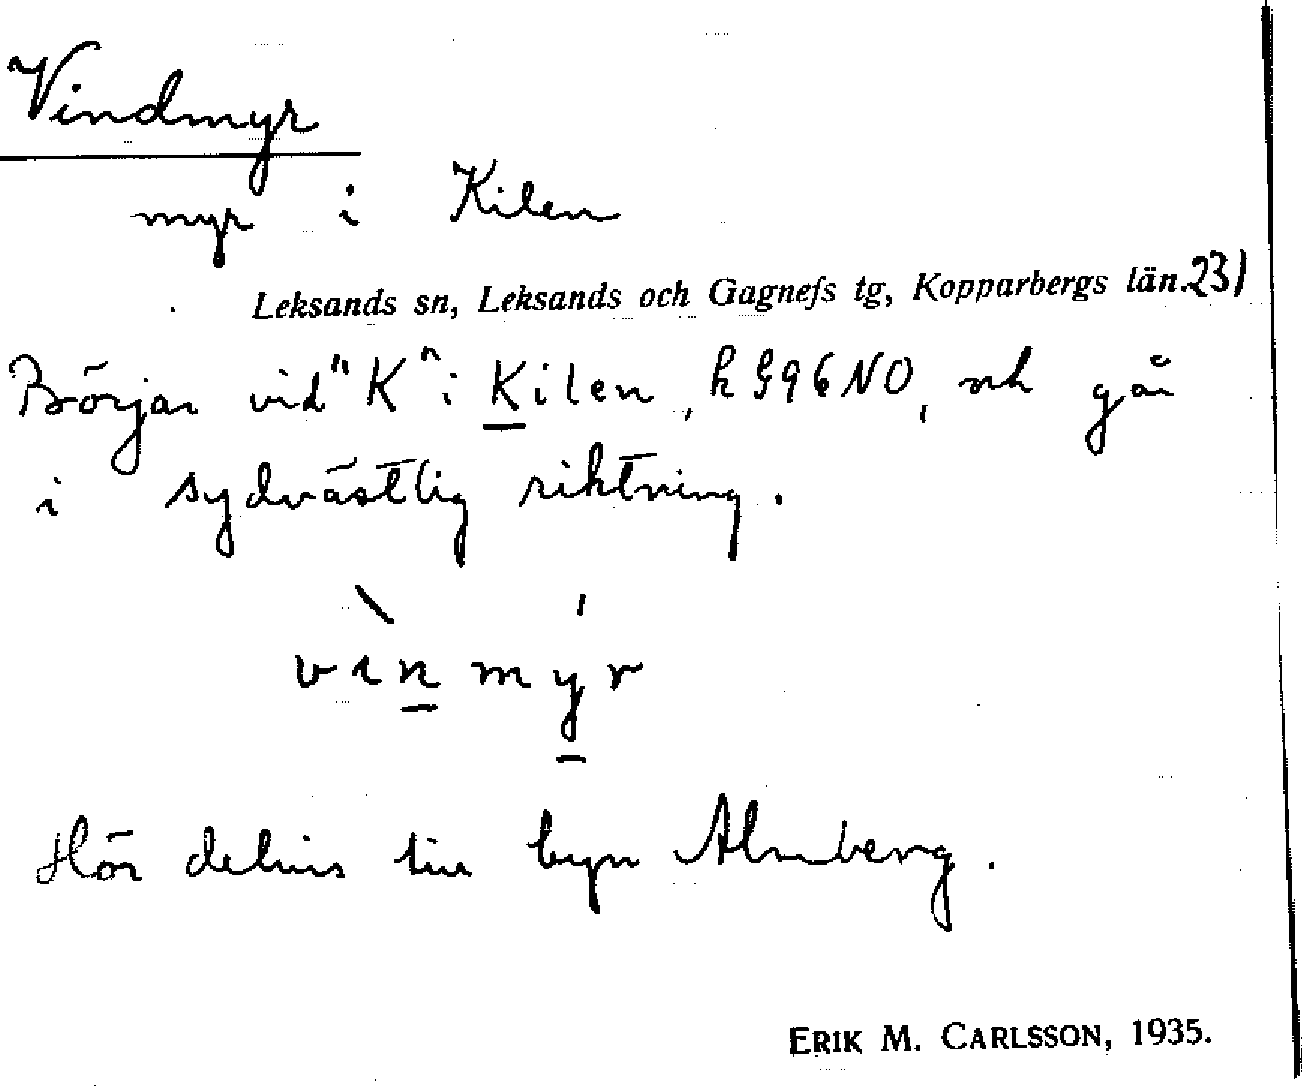 Vindmyr
myr i Kilen
Leksands sn, Leksands och Gagnefs tg, Kopparbergs län. 231
Börjar vid "K" i Kilen, NO, och går
i sydvästlig riktning.
vɪn myr
Hör delvis till byn Almberg.
ERIK M. CARLSSON, 1935.